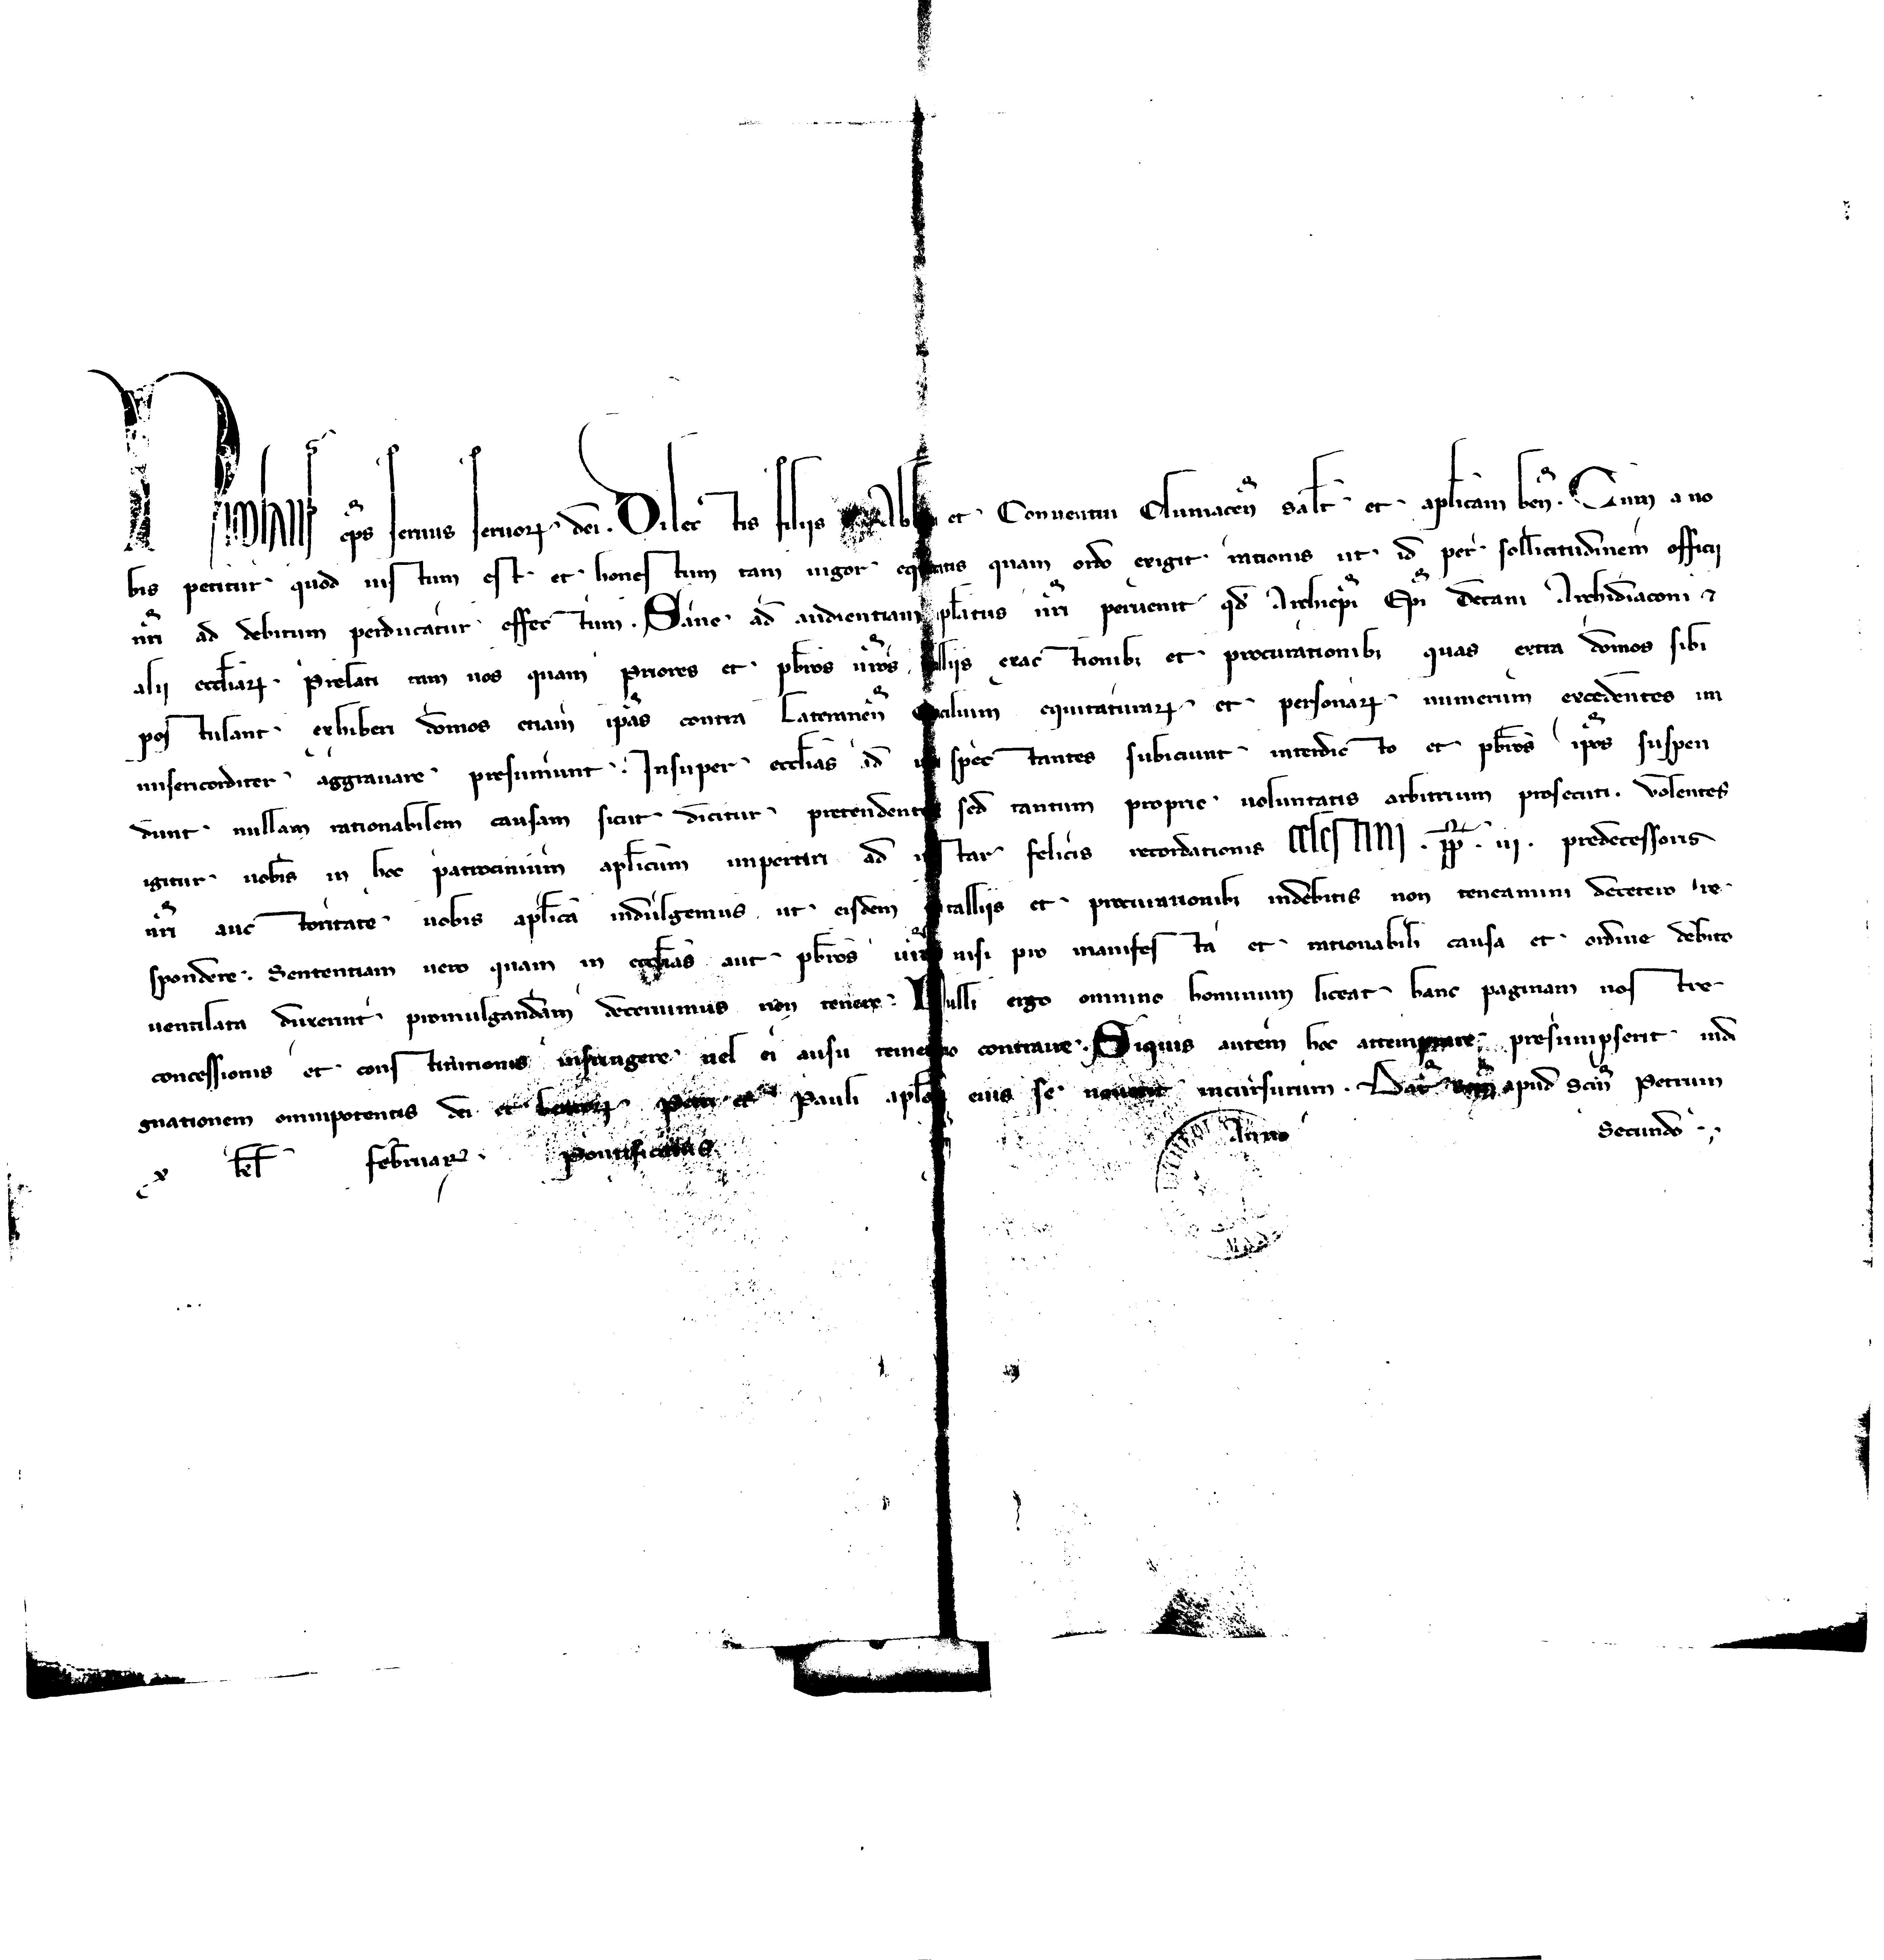 Nicholaus ep̄s seruus seruoꝝ dei. Dilectis filiis Abb et Conuentui Cluniaceñ salt̄ et aplīcam beñ. Cum a no
bis petitur quod iustum est et honestum tam uigor equitatis quam ordo exigit rationis ut id per sollicitudinem officii
nr̄i ad debitum perducatur effectum. Sane ad audientiam aplātus nr̄i peruenit qd̄ Archiepī Epī Decani Archidiaconi ⁊
alii eccliaꝝ Prelati tam uos quam Priores et pbr̄os ur̄os talliis exactionibꝫ et procurationibꝫ quas extra domos sibi
postulant exhiberi domos etiam ip̄as contra Lateraneñ Conciluim equitaturaꝝ et personaꝝ numerum excedentes in
misericorditer aggrauare presumunt. Insuper eccl̄ias ad uos spectantes subiciunt interdicto et pbr̄os ip̄os suspen
dunt nullam rationabilem causam sicut dicitur pretendentes sed tantum proprie uoluntatis arbitrium prosecuti. Volentes
igitur uobis in hoc patrocinium aplīcum impertiri ad instar felicis recordationis Celestini .pp̄. iij. predecessoris
nr̄i auctoritate uobis aplīca indulgemus ut eisdem talliis et procurationibꝫ indebitis non teneamini decetero re
spondere. Sententiam uero quam in eccl̄ias aut pbr̄os ur̄os nisi pro manifesta et rationabili causa et ordine debito
uentilata duxerint promulgandam decernimus non tenere. Nulli ergo omnino hominum liceat hanc paginam nostre
concessionis et constitutionis infringere uel ei ausu temerario contraire. Siquis autem hoc attemptare presumpserit indi
gnationem omnipotentis dei et beatoꝝ Petri et Pauli aploꝝ eius se nouerit incursurum. Dat̄ Rom̄ apud Scm̄ Petrum
x kl̄ februaꝝ. Pontificatus nr̄i Anno Secundo.